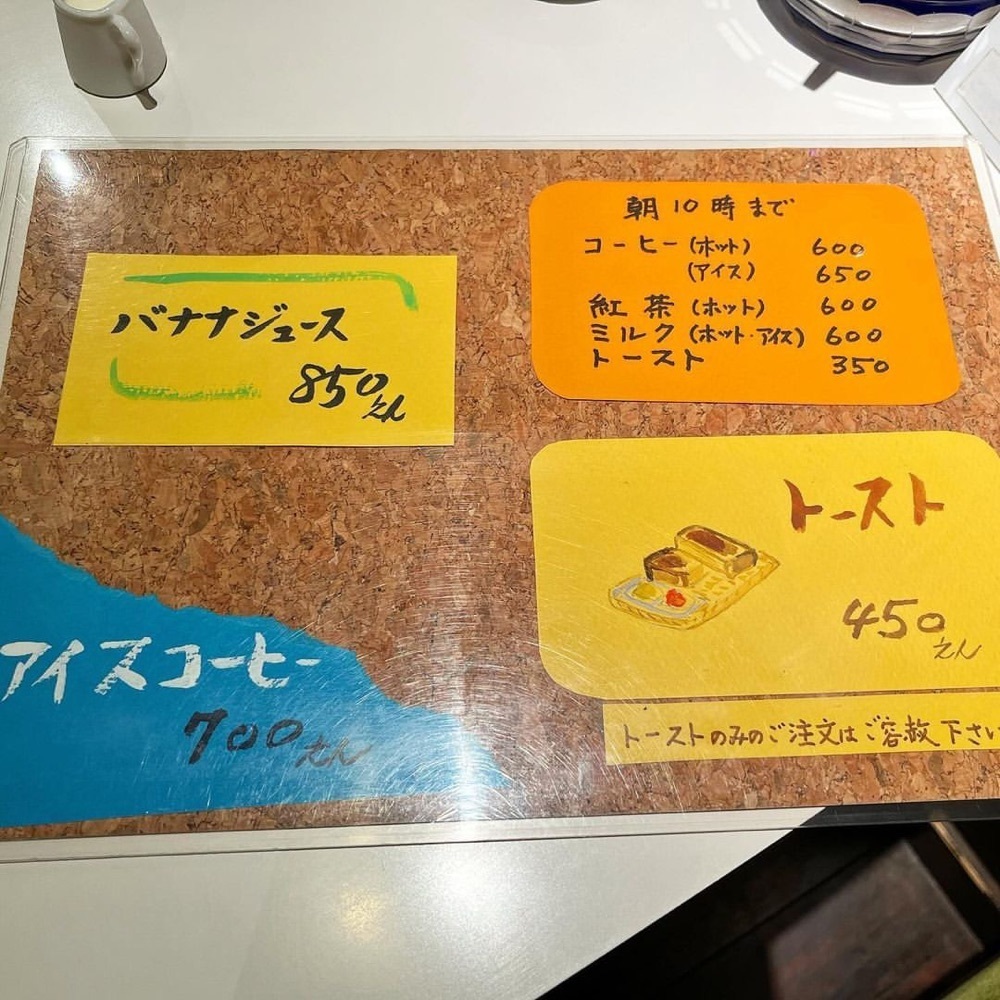 バナナジュース
850えん
朝10時まで
コーヒー(ホット) 600
(アイス) 650
紅茶(ホット) 600
ミルク(ホット・アイス) 600
トースト 350
トースト
450えん
トーストのみのご注文はご容赦下さい
アイスコーヒー
700えん